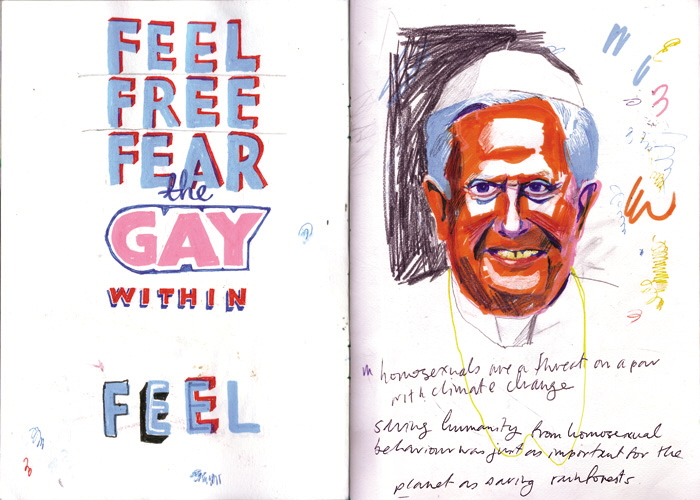 FEEL
FREE
FEAR
the
GAY
WITHIN
FEEL
homosexuals are a threat on a par
with climate change
saving humanity from homosexual
behaviour was just as important for the
planet as saving rainforests